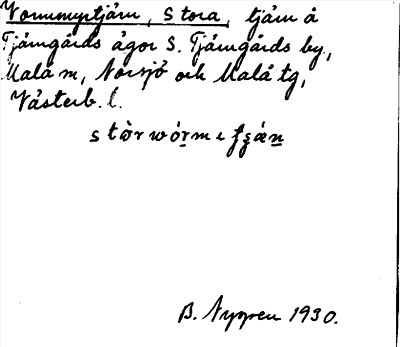 Vormmyrtjärn, Stora, tjärn å
Tjärngårds ägor S. Tjärngårds by,
Malå m, Norsjö och Malå tg,
Västerb. l.
B. Nygren 1930.